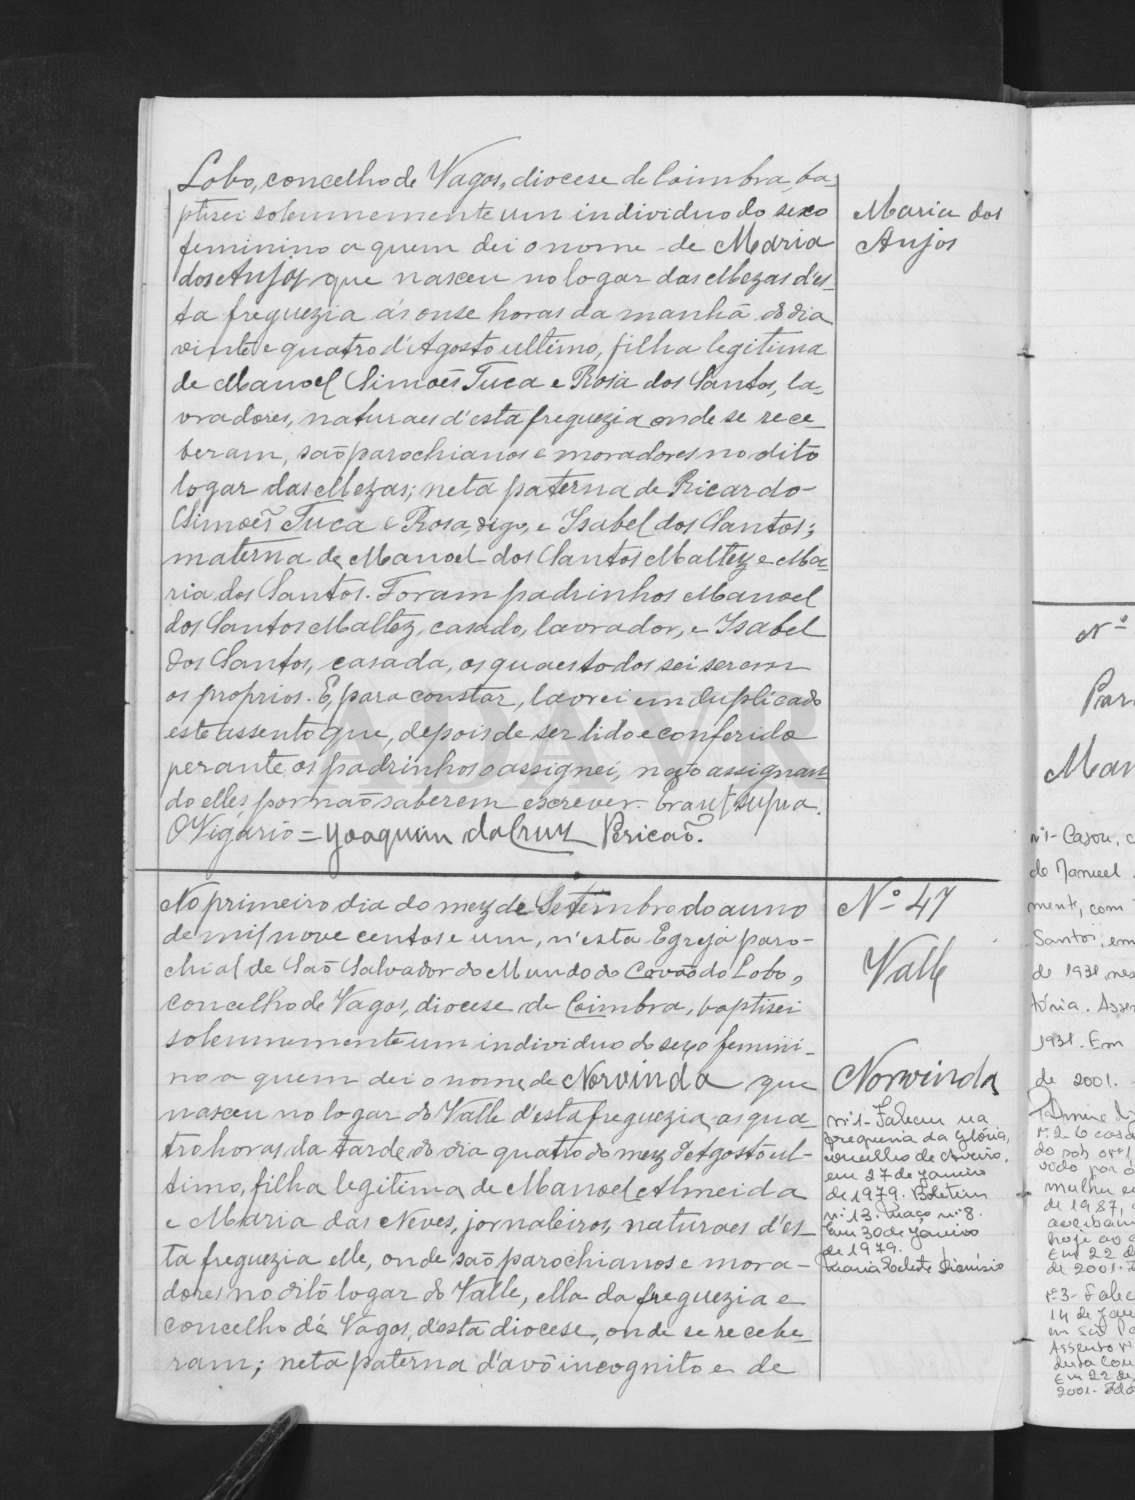 Lobo, concelho de Vagos, diocese de Coimbra, ba-
ptisei solemnemente um individuo do sexo
feminino a quem dei o nome de Maria
dos Anjos que nasceu no logar das Mezas d'es-
ta freguezia ás onse horas da manhã do dia
vinte e quatro d'Agosto ultimo, filha legitima
de Manoel Simões Tuca e Rosa dos Santos, la-
vradores, naturaes d'esta freguezia onde se rece-
beram, são parochianos e moradores no dito
logar das Mezas; neta paterna de Ricardo
Simões Tuca e Rosa, digo, e Isabel dos Santos;
materna de Manoel dos Santos Maltez e Ma-
ria dos Santos. Foram padrinhos Manoel
dos Santos Maltez, casado, lavrador, e Isabel
dos Santos, casada, os quaes todos sei serem
os proprios. E, para constar, lavrei em duplicado
este assento que, depois de ser lido e conferido
perante os padrinhos o assignei, não assignan-
do elles por não saberem escrever. Era ut supra.
O Vigário = Joaquim da Cruz Pericão.
Maria dos
Anjos
ADAVR
No primeiro dia do mez de Setembro do anno
de mil nove centos e um, n'esta Egreja paro-
chial de São Salvador do Mundo do Covão do Lobo,
concelho de Vagos, diocese de Coimbra, baptisei
solemnemente um individuo do sexo femini-
no a quem dei o nome de Norvinda que
nasceu no logar do Valle d'esta freguezia as qua-
tro horas da tarde do dia quatro do mez d'Agosto ul-
timo, filha legitima de Manoel Almeida
e Maria das Neves, jornaleiros, naturaes d'es-
ta freguezia elle, onde são parochianos e mora-
dores no dito logar do Valle, ella da freguezia e
concelho de Vagos, d'esta diocese, onde se recebe-
ram; neta paterna d'avô incognito e de
Nº 47
Valle
Norvinda
nº1- Faleceu na
freguesia da Glória,
concelho de Aveiro,
em 27 de janeiro
de 1979. Boletim
nº 13. Maço nº 8.
Em 30 de janeiro
de 1979.
Maria Celeste Dionísio
Nº
Par
Man
nº1- Casou, c
de Manuel
ment, com
Santos, em
de 1931 nes
tória. Assen
1931. Em
de 2001.
de 1987,
hoje ao
Em 22 d
de 2001.
nº3- Falec
14 de Jan
em São
Assento nº
desta Con
Em 22 de
2001-